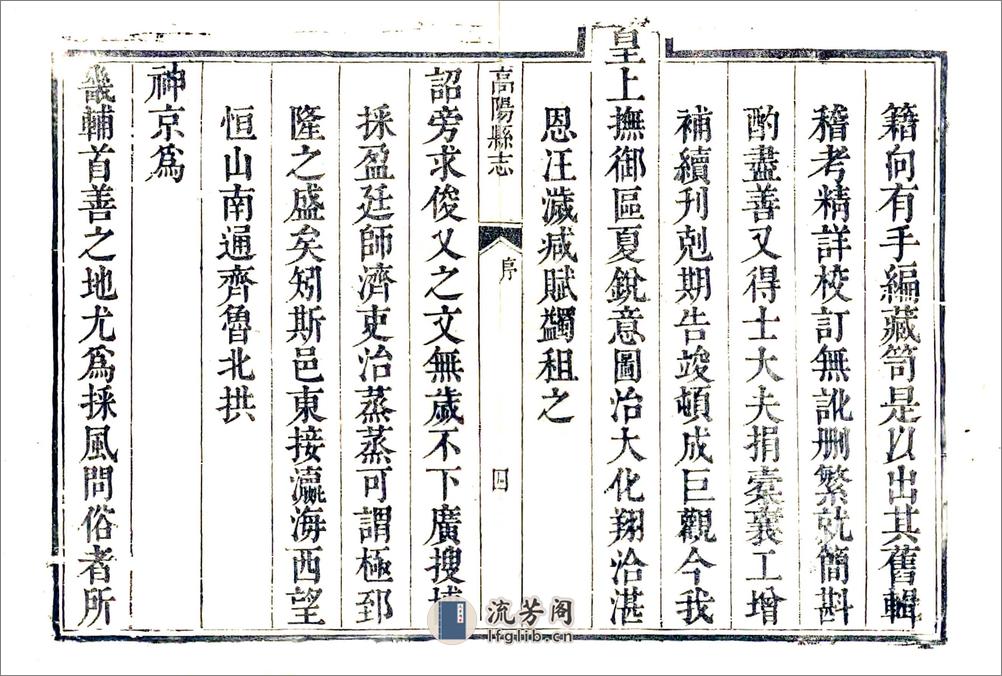 籍向有手編藏笥是以出其舊輯
稽考精詳校訂無訛刪繁就簡斟
酌盡善又得士大夫捐槖襄工增
補續刊剋期告竣頓成巨觀今我
皇上撫御區夏銳意圖治大化翔洽湛
恩汪濊減賦蠲租之
高陽縣志
序
四
詔旁求俊乂之文無歲不下廣搜
採盈廷師濟吏治蒸蒸可謂極郅
隆之盛矣矧斯邑東接瀛海西望
恒山南通齊魯北拱
神京爲
畿輔首善之地尤爲採風問俗者所
流芳阁
lfglib.cn